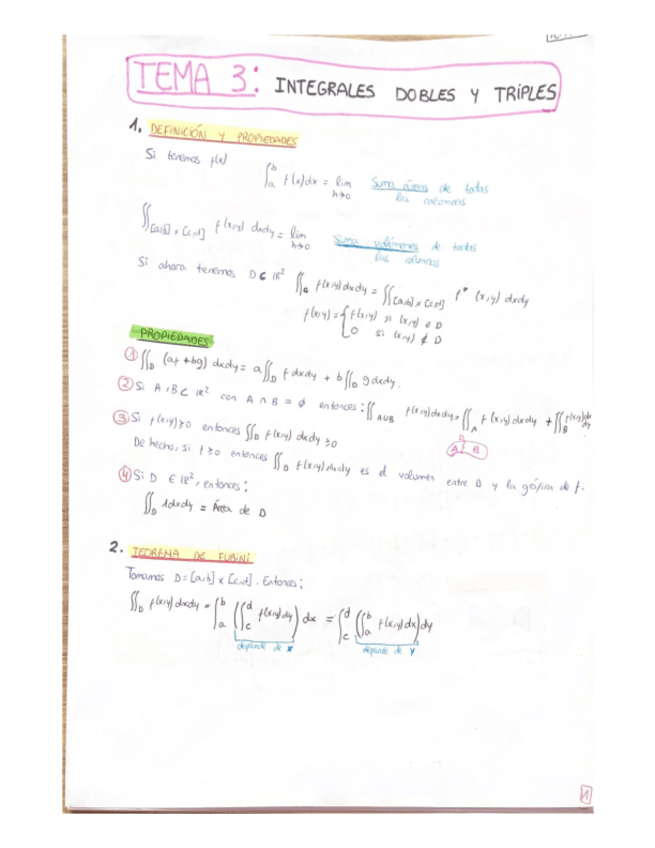 TEMA 3: INTEGRALES DOBLES Y TRIPLES
1. DEFINICIÓN Y PROPIEDADES
Si tenemos f(x)
∫_a^b f(x)dx = lim_{h→0} Suma áreas de todas
las columnas
∬_{[a,b]x[c,d]} f(x,y) dxdy = lim_{h→0} Suma volúmenes de todas
las columnas
Si ahora tenemos D⊂ℝ² ∬_D f(x,y)dxdy = ∬_{[a,b]x[c,d]} f* (x,y) dxdy
f(x,y) = { f(x,y) si (x,y) ∈ D
0 si (x,y) ∉ D
PROPIEDADES
① ∬_D (af + bg) dxdy = a∬_D f dxdy + b∬_D g dxdy.
② Si A,B ⊂ ℝ² con A ∩ B = ∅ entonces: ∬_{A∪B} f(x,y)dxdy = ∬_A f(x,y)dxdy + ∬_B f(x,y)dx
dy
③ Si f(x,y)≥0 entonces ∬_D f(x,y) dxdy ≥0
A B
De hecho, si f≥0 entonces ∬_D f(x,y)dxdy es el volumen entre D y la gráfica de f.
④ Si D ∈ ℝ², entonces;
∬_D 1dxdy = Área de D
2. TEOREMA DE FUBINI
Tomamos D = [a,b] x [c,d]. Entonces;
∬_D f(x,y)dxdy = ∫_a^b (∫_c^d f(x,y)dy) dx = ∫_c^d (∫_a^b f(x,y)dx) dy
depende de x depende de y
1